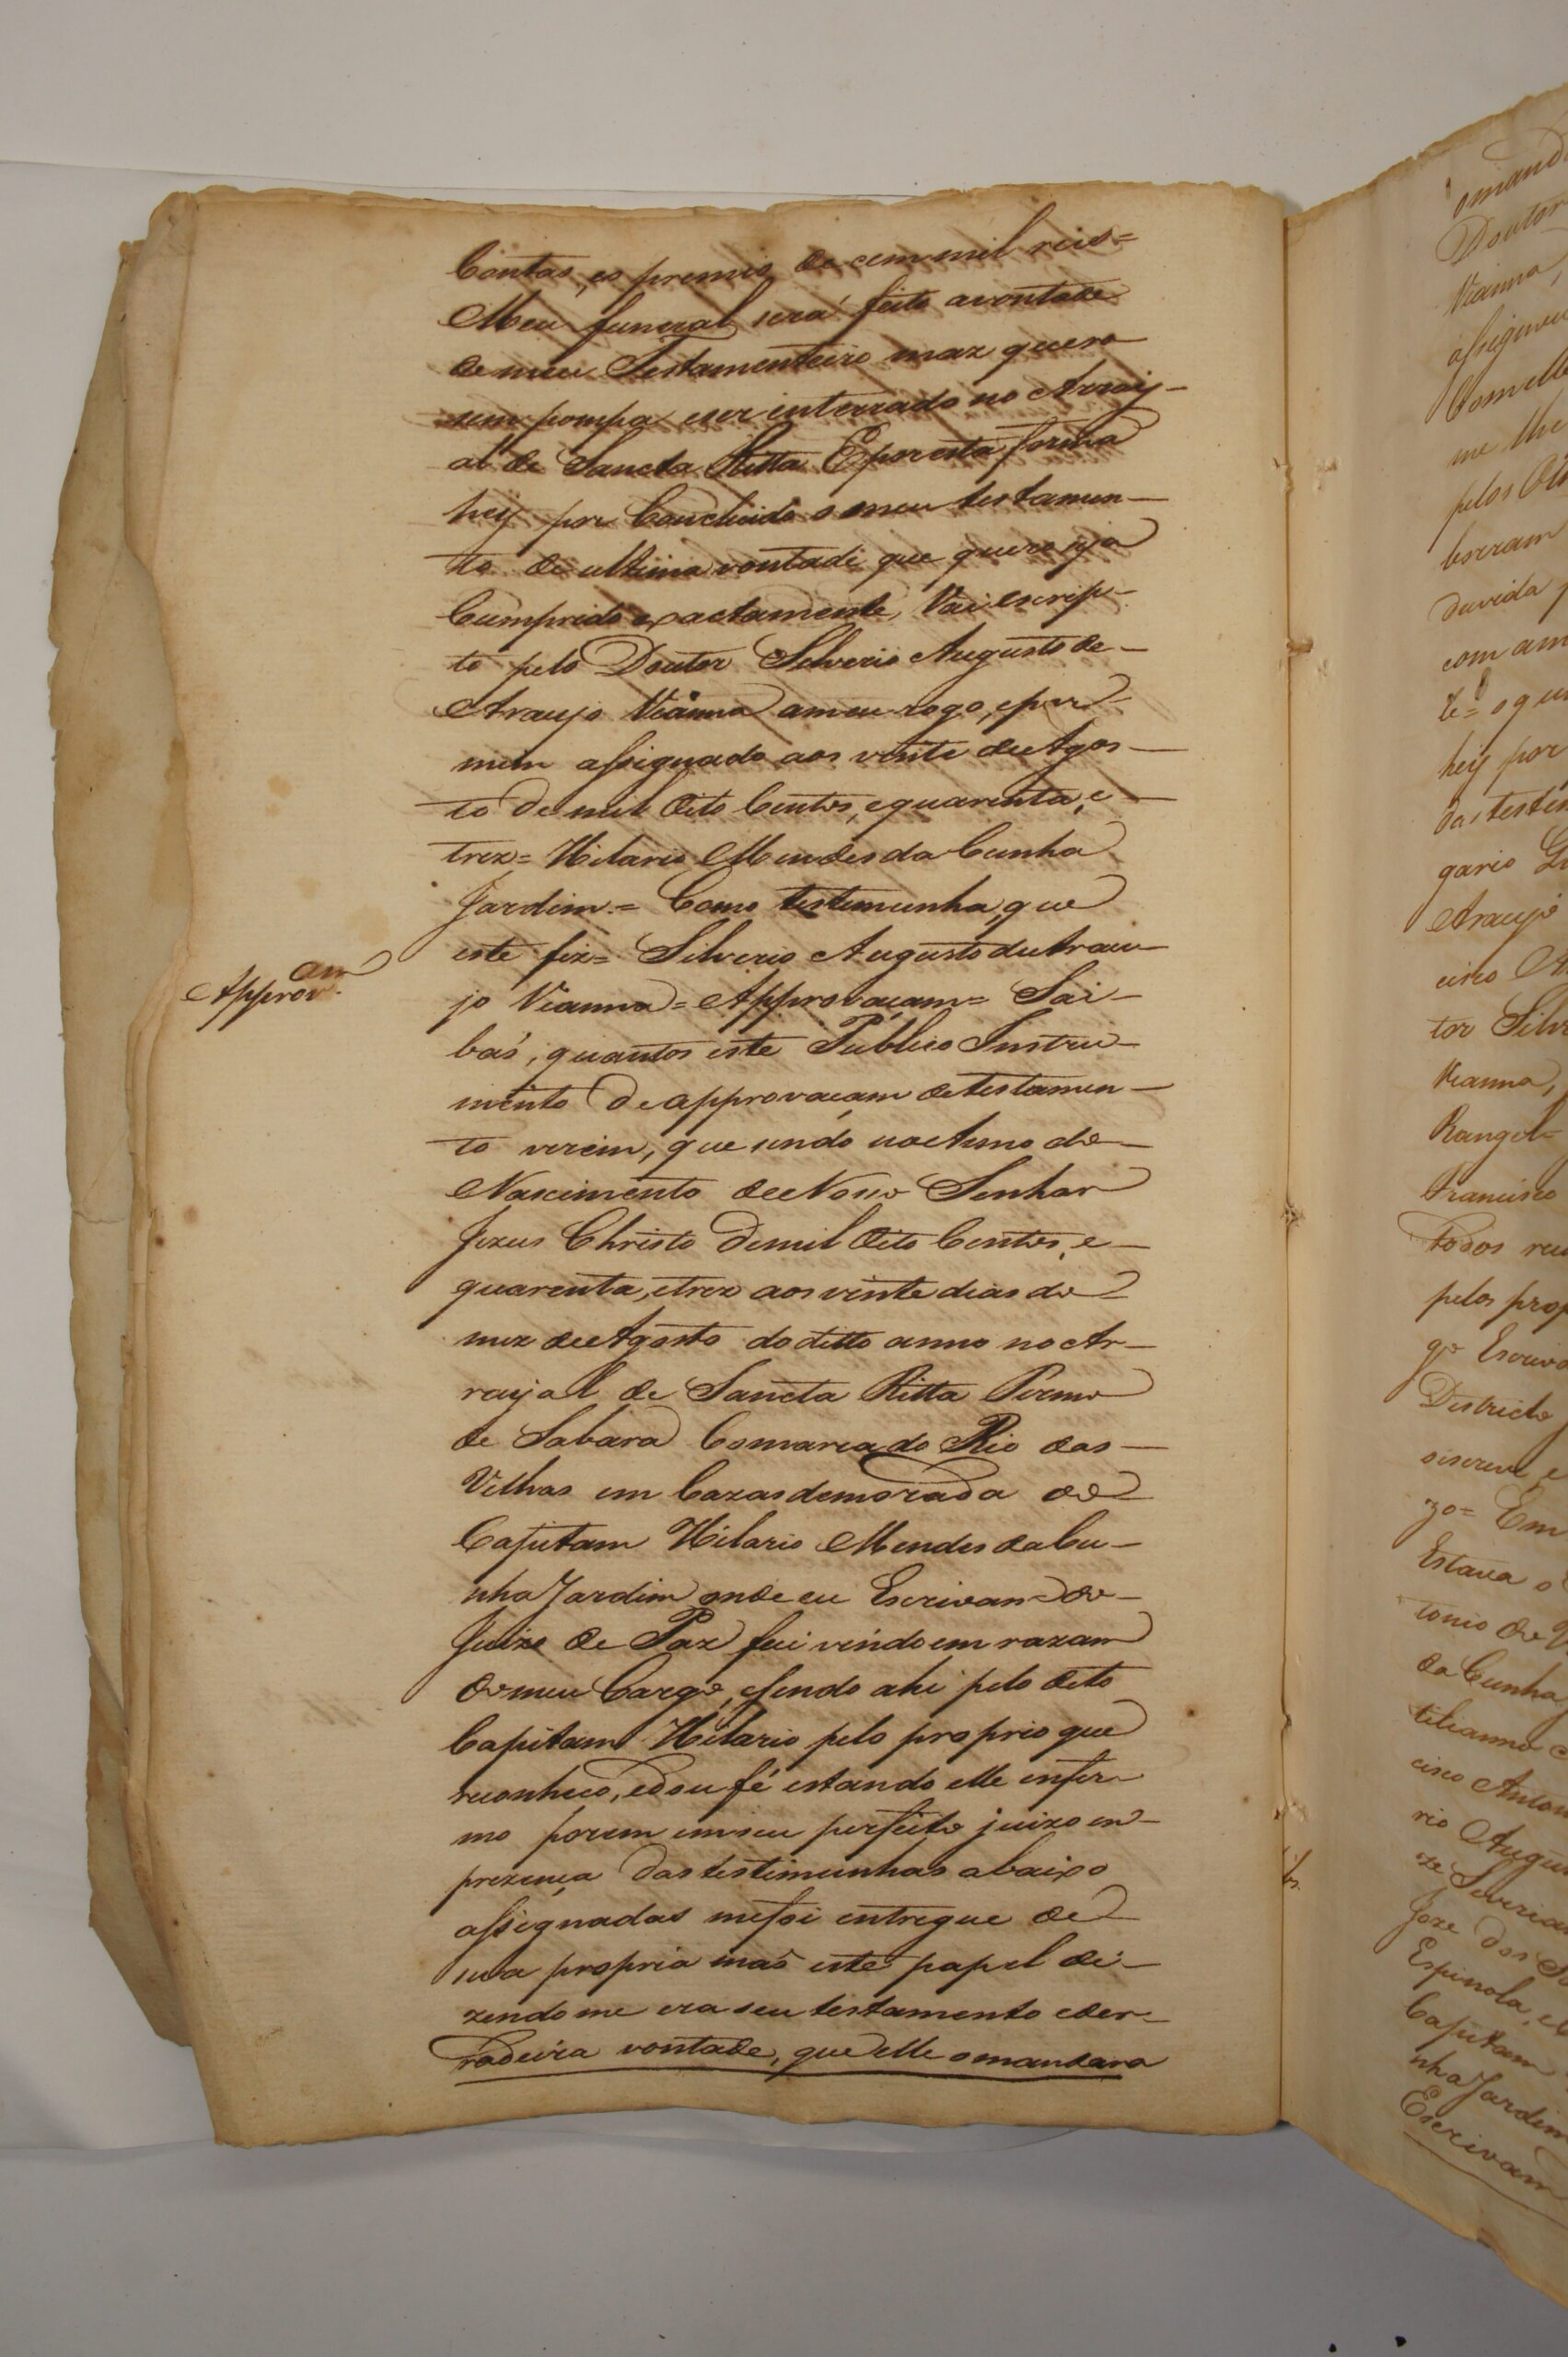 Contas, eo premio de cem mil reis=
Meu funeral será feito avontade
de meu Testamenteiro maz quero
sem pompa eser interrado no Arraij-
al de Sancta Ritta E por esta forma
heij por Concluido o meu testamen-
to de ultima vontade que quero seja
Cumprido exactamente, Vai escrip-
to pelo Doutor Silverio Augusto de-
Araujo Vianna ameu rogo, epor-
mim assignado aos vinte de Agos-
to de mil Oito Centos, equarenta, e
trez= Hilario Mendes da Cunha
Jardim= Como testemunha, que
este fiz= Silverio Augusto de Arau-
Approv.am
jo Vianna= Approvaçam= Sai-
baõ, quantos este Publico Instru-
mento de approvaçam de testamen-
to virem, que sendo no Anno do-
Nascimento de Nosso Senhor
Jezus Christo de mil Oito Centos, e-
quarenta, etrez aos vinte dias do
mez de Agosto do ditto anno no Ar-
rayal de Sancta Ritta Termo
de Sabara Comarca do Rio das-
Velhas em Cazas de morada do
Capitam Hilario Mendes da Cu-
nha Jardim onde eu Escrivam do-
Juizo de Paz fui vindo em razam
do meu Cargo, esendo ahi pelo dito
Capitam Hilario pelo proprio que
reconheco, edou fé estando elle infer-
mo porem em seu perfeito juizo em-
prezença das testimunhas abaixo
assignadas mefoi entregue de
sua propria maõ este papel di-
zendo me era seu testamento eder-
radeira vontade, que elle o mandara
omand
Doutor
Vianna,
assignou
Com elle
me lhe
pelos
duvida
com am
hey por
das testem
gario
Araujo
tor Silv
Vianna,
Rangel=
Francisco
todos
pelos prop
go Escriva
Districto
zo= Em
Estava o
tonio de
da Cunha
cisco Anton
rio Augus
Joze dos S
Espinola, e
Capitam
nha Jardim
Escrivam